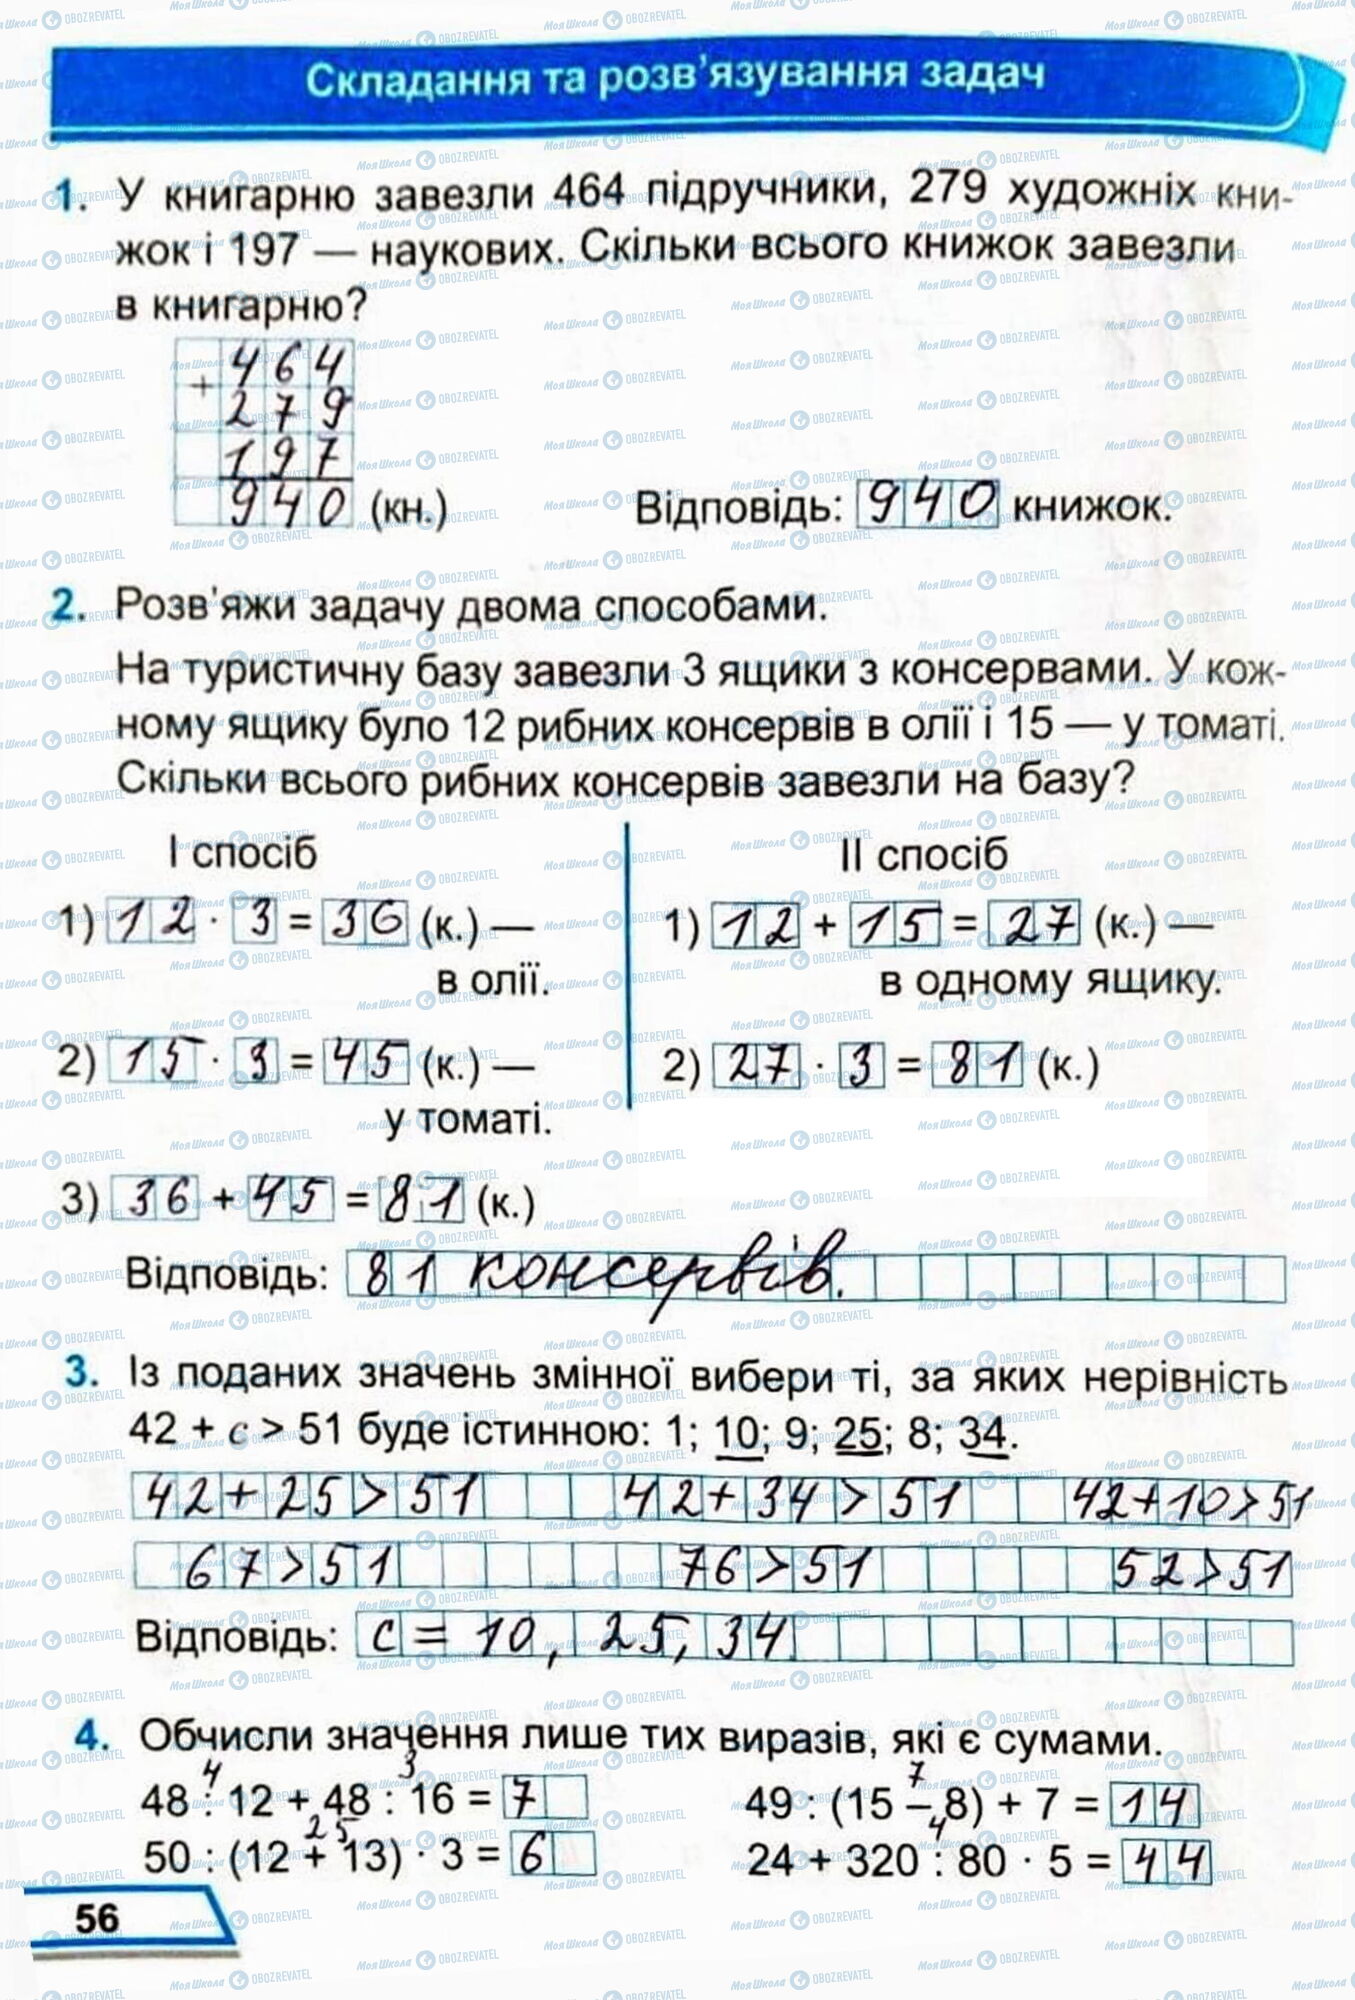 Складання та розв'язування задач
1. У книгарню завезли 464 підручники, 279 художніх кни-
жок і 197 — наукових. Скільки всього книжок завезли
в книгарню?
464
+
279
197
940 (кн.)
Відповідь: 940 книжок.
2. Розв'яжи задачу двома способами.
На туристичну базу завезли 3 ящики з консервами. У кож-
ному ящику було 12 рибних консервів в олії і 15 — у томаті.
Скільки всього рибних консервів завезли на базу?
І спосіб
1) 12 · 3 = 36 (к.) —
в олії.
2) 15 · 3 = 45 (к.) —
у томаті.
3) 36 + 45 = 81 (к.)
ІІ спосіб
1) 12 + 15 = 27 (к.) —
в одному ящику.
2) 27 · 3 = 81 (к.)
Відповідь: 81 консервів.
3. Із поданих значень змінної вибери ті, за яких нерівність
42 + c > 51 буде істинною: 1; 10; 9; 25; 8; 34.
42+25>51 42+34>51 42+10>51
67>51 76>51 52>51
Відповідь: c = 10, 25, 34
4. Обчисли значення лише тих виразів, які є сумами.
4 3 7
48 : 12 + 48 : 16 = 7 49 : (15 – 8) + 7 = 14
25 4
50 : (12 + 13) · 3 = 6 24 + 320 : 80 · 5 = 44
56
МояШкола OBOZREVATEL